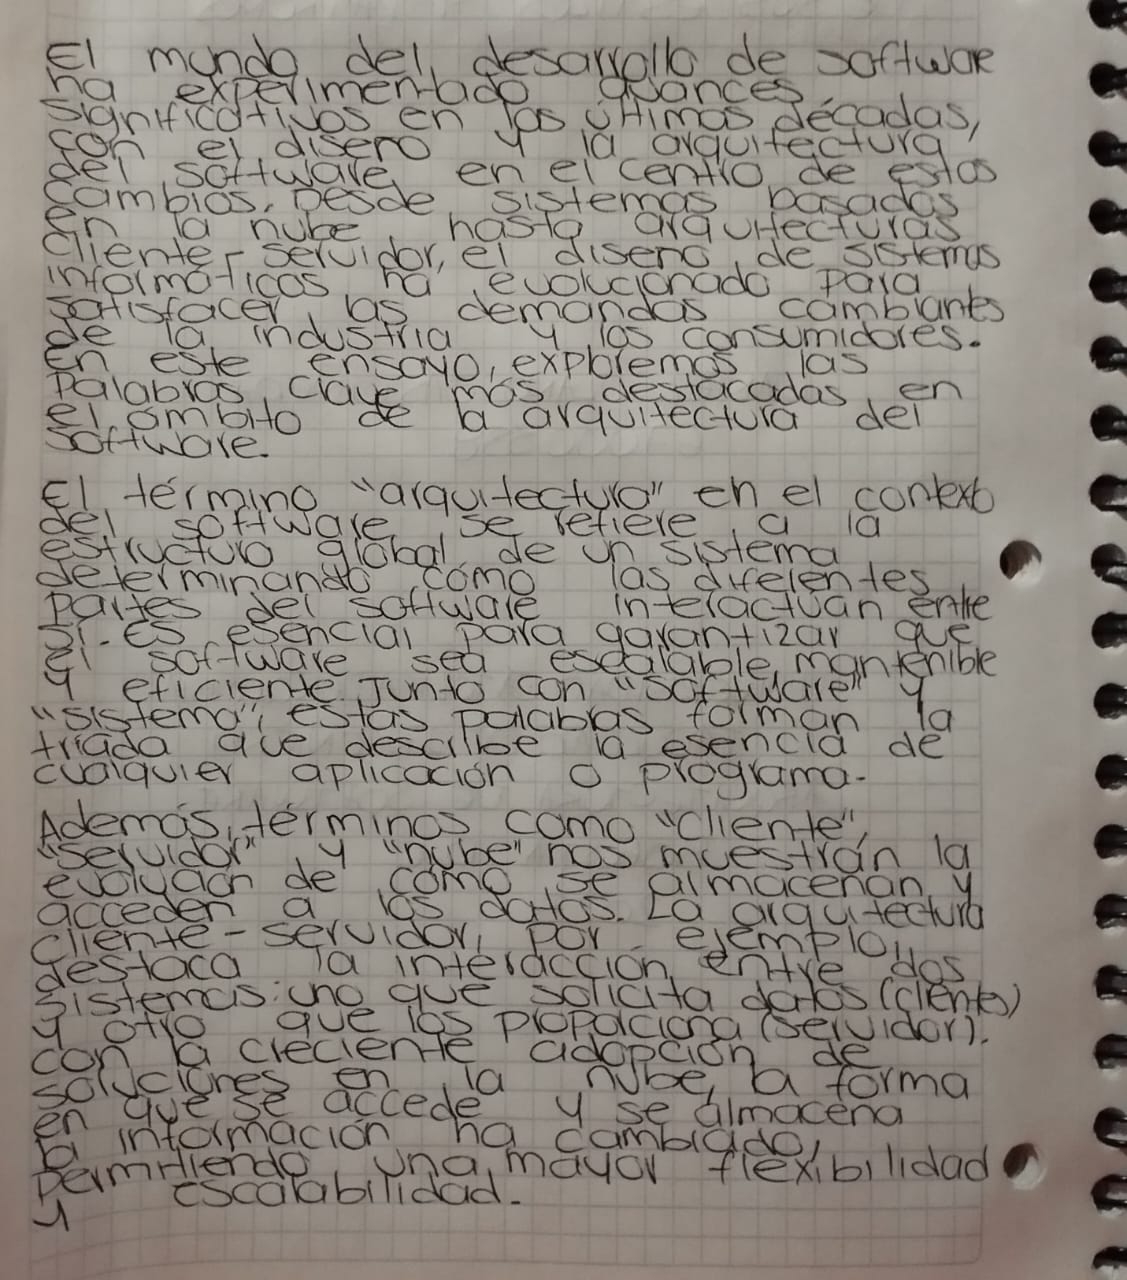 El mundo del desarrollo de software
ha experimentado avances
significativos en los últimas décadas,
con el diseño y la arquitectura
del software en el centro de estos
cambios. Desde sistemas basados
en la nube hasta arquitecturas
cliente-servidor, el diseño de sistemas
informáticos ha evolucionado para
satisfacer las demandas cambiantes
de la industria y los consumidores.
En este ensayo, exploremos las
palabras clave más destacadas en
el ámbito de la arquitectura del
software.
El término "arquitectura" en el contexto
del software se refiere a la
estructura global de un sistema
determinando cómo las diferentes
partes del software interactúan entre
sí. Es esencial para garantizar que
el software sea escalable, mantenible
y eficiente. Junto con "software" y
"sistema", estas palabras forman la
tríada que describe la esencia de
cualquier aplicación o programa.
Además, términos como "cliente",
"servidor" y "nube" nos muestran la
evolución de cómo se almacenan y
acceden a los datos. La arquitectura
cliente-servidor, por ejemplo,
destaca la interacción entre dos
sistemas: uno que solicita datos (cliente)
y otro que los proporciona (servidor).
con la creciente adopción de
soluciones en la nube, la forma
en que se accede y se almacena
la información ha cambiado,
permitiendo una mayor flexibilidad
y escalabilidad.